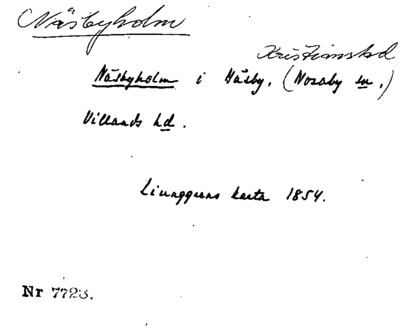 Näsbyholm
Kristianstad
Näsbyholm i Näsby, (Nosaby sn.)
Villands hd.
Ljunggrens karta 1854.
Nr 7723.